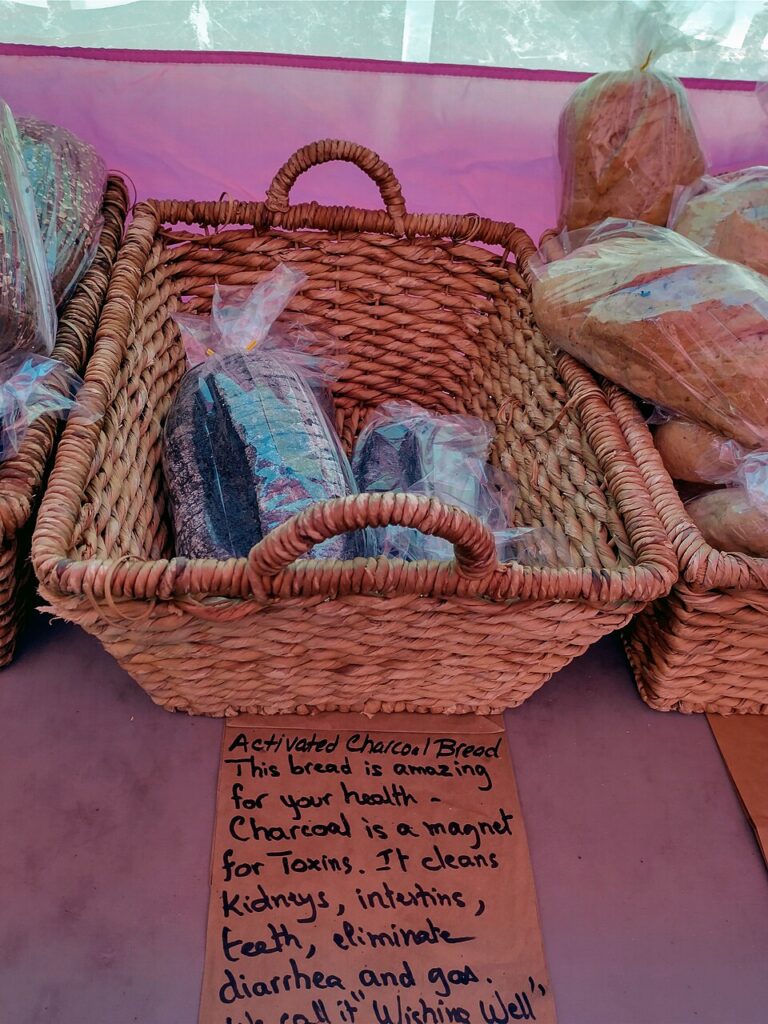 Activated Charcoal Bread
This bread is amazing
for your health -
Charcoal is a magnet
for Toxins. It cleans
Kidneys, intestins,
teeth, eliminate
diarrhea and gas.
We call it "Wishing Well",